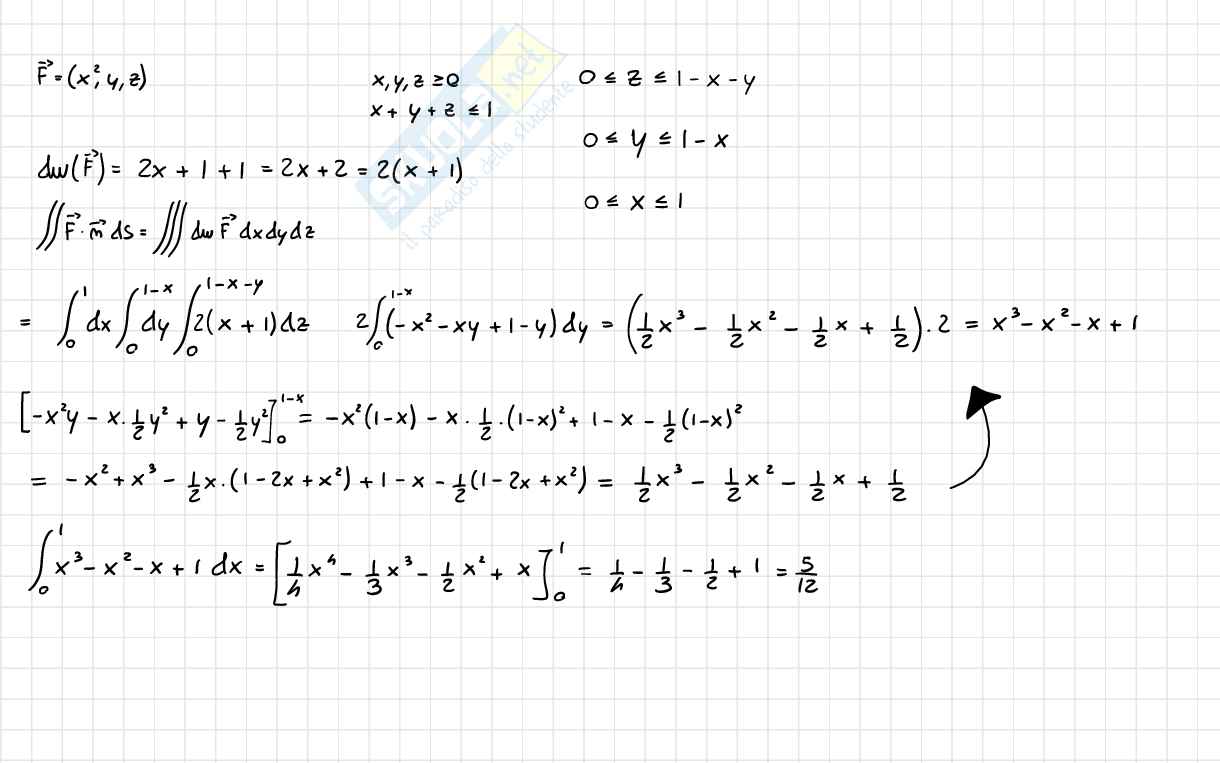 F⃗ = (x², y, z)
x, y, z ≥ 0
x + y + z ≤ 1
0 ≤ z ≤ 1 - x - y
0 ≤ y ≤ 1 - x
0 ≤ x ≤ 1
div(F⃗) = 2x + 1 + 1 = 2x + 2 = 2(x + 1)
∬ F⃗ · n⃗ ds = ∭ div F⃗ dx dy dz
= ∫₀¹ dx ∫₀^{1-x} dy ∫₀^{1-x-y} 2(x + 1) dz   2∫₀^{1-x} (-x² - xy + 1 - y) dy = (1/2 x³ - 1/2 x² - 1/2 x + 1/2) · 2 = x³ - x² - x + 1
[-x²y - x · 1/2 y² + y - 1/2 y²]₀^{1-x} = -x²(1-x) - x · 1/2 · (1-x)² + 1 - x - 1/2 (1-x)²
= -x² + x³ - 1/2 x · (1 - 2x + x²) + 1 - x - 1/2 (1 - 2x + x²) = 1/2 x³ - 1/2 x² - 1/2 x + 1/2
∫₀¹ x³ - x² - x + 1 dx = [1/4 x⁴ - 1/3 x³ - 1/2 x² + x]₀¹ = 1/4 - 1/3 - 1/2 + 1 = 5/12
SKUOLA.net
il paradiso dello studente